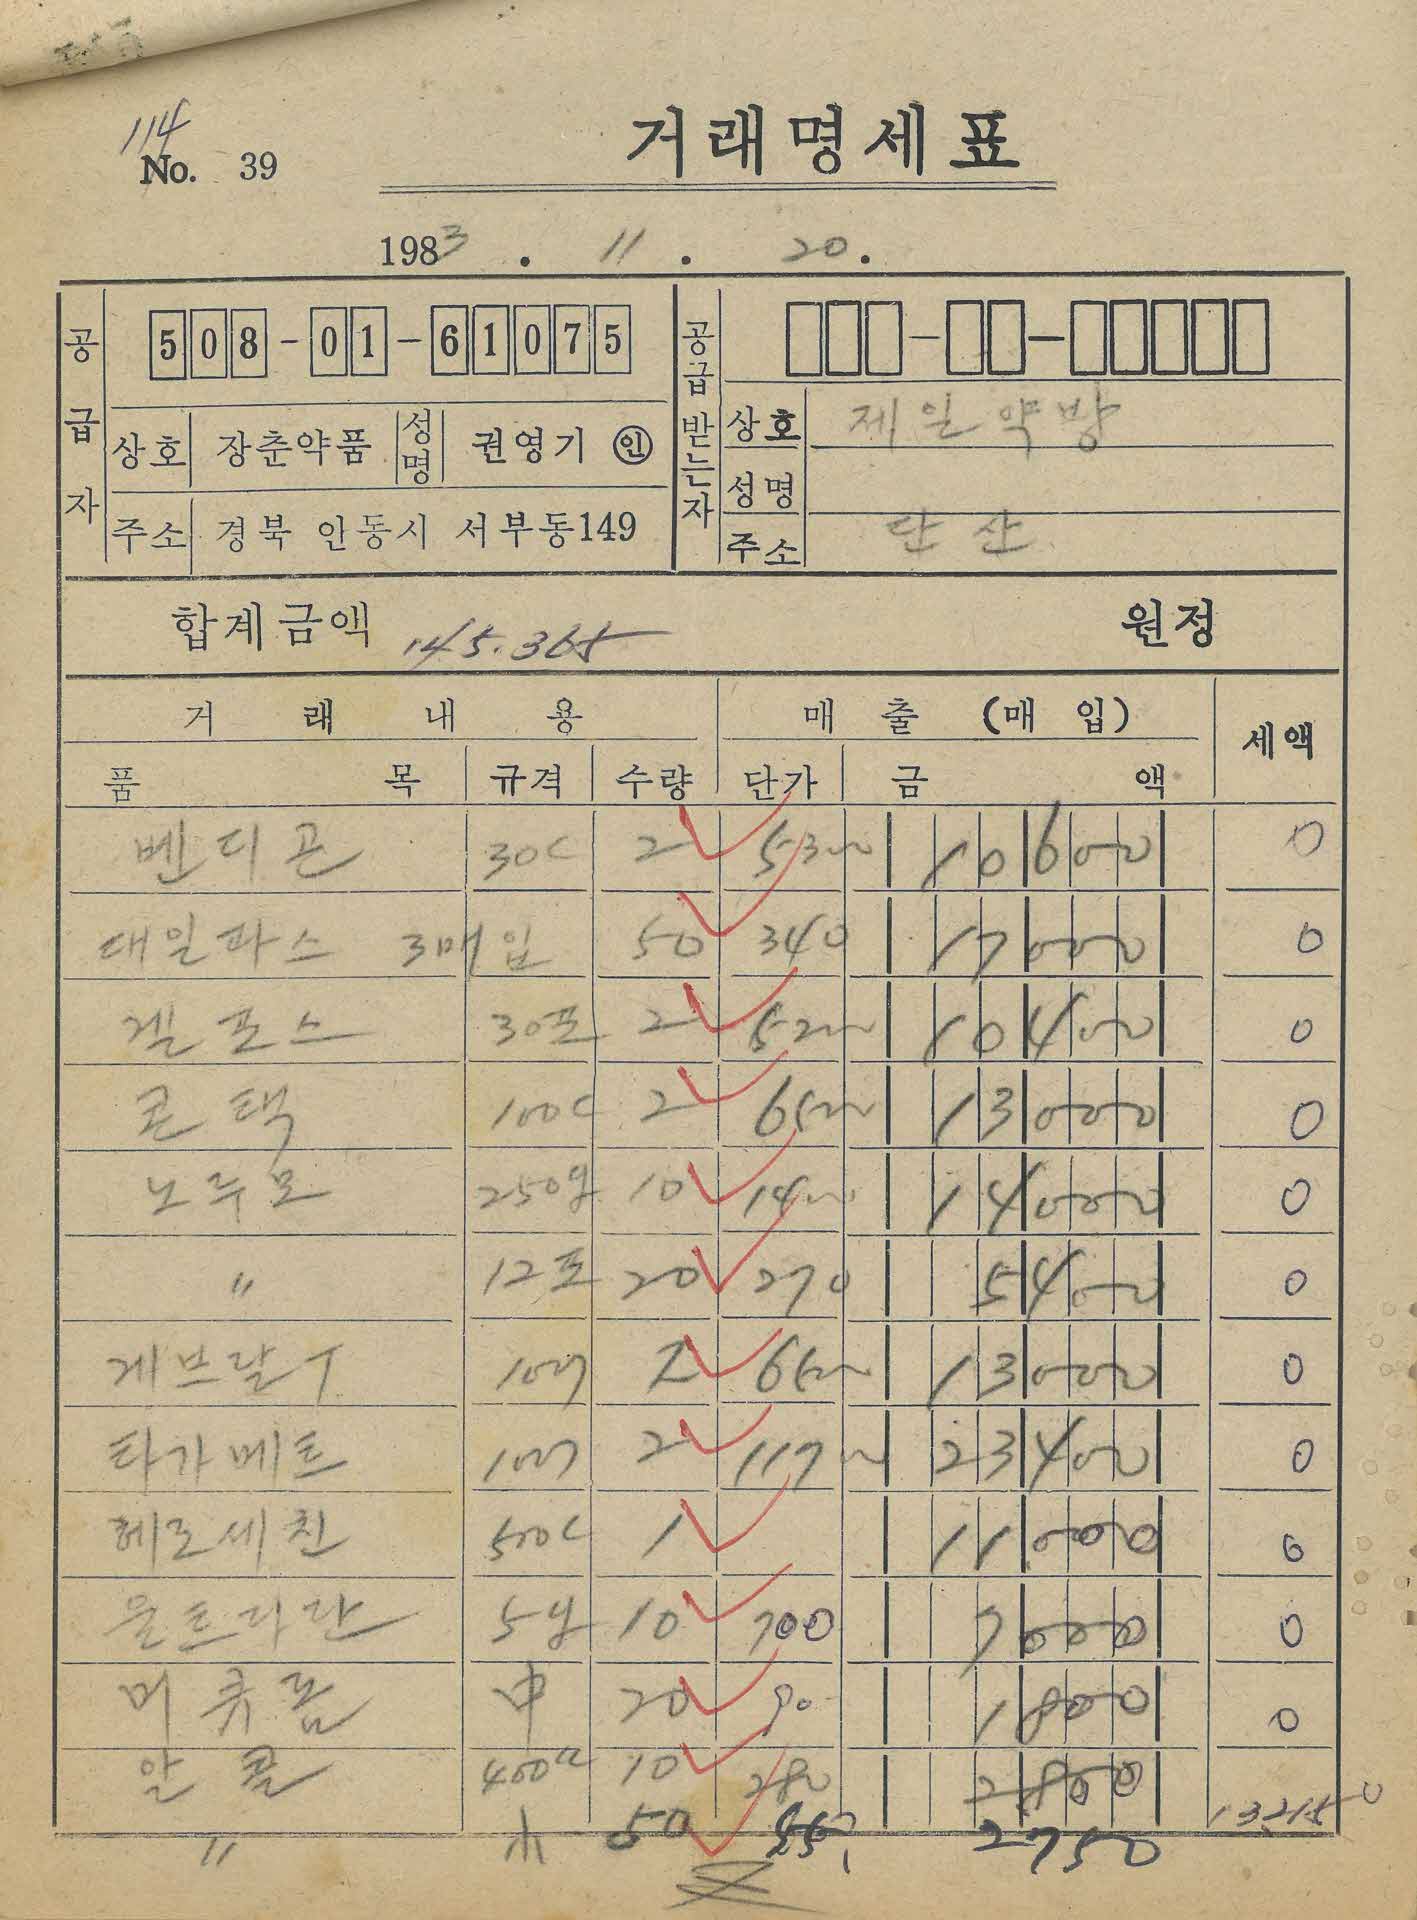 114
No. 39
거래명세표
1983. 11. 20.
공급자
508-01-61075
상호 장춘약품 성명 권영기 ㊞
주소 경북 안동시 서부동149
공급받는자
상호 제일약방
성명
주소 단산
합계금액 145.365 원정
거래내용 매출(매입) 세액
품목 규격 수량 단가 금액
벤디곤 30C 2 5300 10600 0
대일파스 3매입 50 340 17000 0
겔포스 30포 2 5200 10400 0
콘택 100C 2 6500 13000 0
노루모 250g 10 1400 14000 0
〃 12포 20 270 5400 0
게브랄T 100T 2 6500 13000 0
타가메트 100T 2 11700 23400 0
헤로세친 500C 1 11000 0
울트라란 5g 10 700 7000 0
머큐롬 中 20 90 1800 0
알콜 400 10 280 2800 0
132150
〃 小 50 55 2750